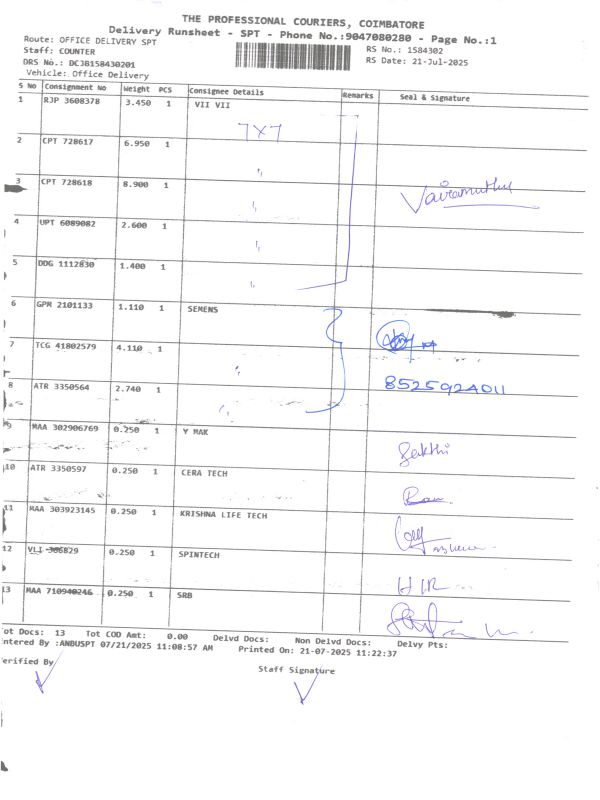 THE PROFESSIONAL COURIERS, COIMBATORE
Delivery Runsheet - SPT - Phone No.:9047080280 - Page No.:1
Route: OFFICE DELIVERY SPT
RS No.: 1584302
Staff: COUNTER
RS Date: 21-Jul-2025
DRS No.: DCJB158430201
Vehicle: Office Delivery
S No Consignment No Weight PCS Consignee Details Remarks Seal & Signature
1 RJP 3608378 3.450 1 VII VII
7X7
2 CPT 728617 6.950 1 "
3 CPT 728618 8.900 1 "
Vairamuthu
4 UPT 6089082 2.600 1 "
5 DDG 1112830 1.400 1 "
6 GPM 2101133 1.110 1 SEMENS
7 TCG 41802579 4.110 1 "
8 ATR 3350564 2.740 1 "
8525924011
9 MAA 302906769 0.250 1 Y MAK
Sakthi
10 ATR 3350597 0.250 1 CERA TECH
11 MAA 303923145 0.250 1 KRISHNA LIFE TECH
12 VLI 306829 0.250 1 SPINTECH
13 MAA 710940246 0.250 1 SRB
Tot Docs: 13 Tot COD Amt: 0.00 Delvd Docs: Non Delvd Docs: Delvy Pts:
Entered By :ANBUSPT 07/21/2025 11:08:57 AM Printed On: 21-07-2025 11:22:37
Verified By
Staff Signature